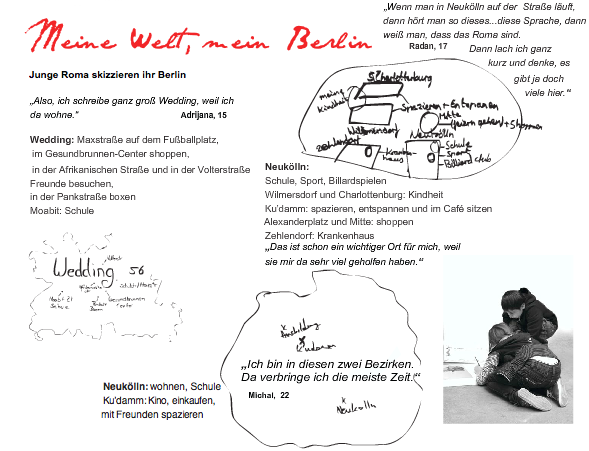 „Wenn man in Neukölln auf der Straße läuft,
dann hört man so dieses...diese Sprache, dann
weiß man, dass das Roma sind.
Radan, 17
Dann lach ich ganz
kurz und denke, es
gibt ja doch
viele hier.“
Meine Welt, mein Berlin
Junge Roma skizzieren ihr Berlin
„Also, ich schreibe ganz groß Wedding, weil ich
da wohne."
Adrijana, 15
Wedding: Maxstraße auf dem Fußballplatz,
im Gesundbrunnen-Center shoppen,
in der Afrikanischen Straße und in der Volterstraße
Freunde besuchen,
in der Pankstraße boxen
Moabit: Schule
Charlottenburg
meine
Kindheit
Spazieren + Entspannen
Mitte
feiern gehen + Shoppen
Wilmersdorf
Neukölln
Zehlendorf
Kranken-
haus
Schule
Sport
Billiard club
Neukölln:
Schule, Sport, Billardspielen
Wilmersdorf und Charlottenburg: Kindheit
Ku'damm: spazieren, entspannen und im Café sitzen
Alexanderplatz und Mitte: shoppen
Zehlendorf: Krankenhaus
„Das ist schon ein wichtiger Ort für mich, weil
sie mir da sehr viel geholfen haben.“
Wedding 56
Moabit 21
Schule
Gesundbrunnen
Center
Ausbildung
Kudamm
„Ich bin in diesen zwei Bezirken.
Da verbringe ich die meiste Zeit.“
Michal, 22
Neukölln
Neukölln: wohnen, Schule
Ku'damm: Kino, einkaufen,
mit Freunden spazieren